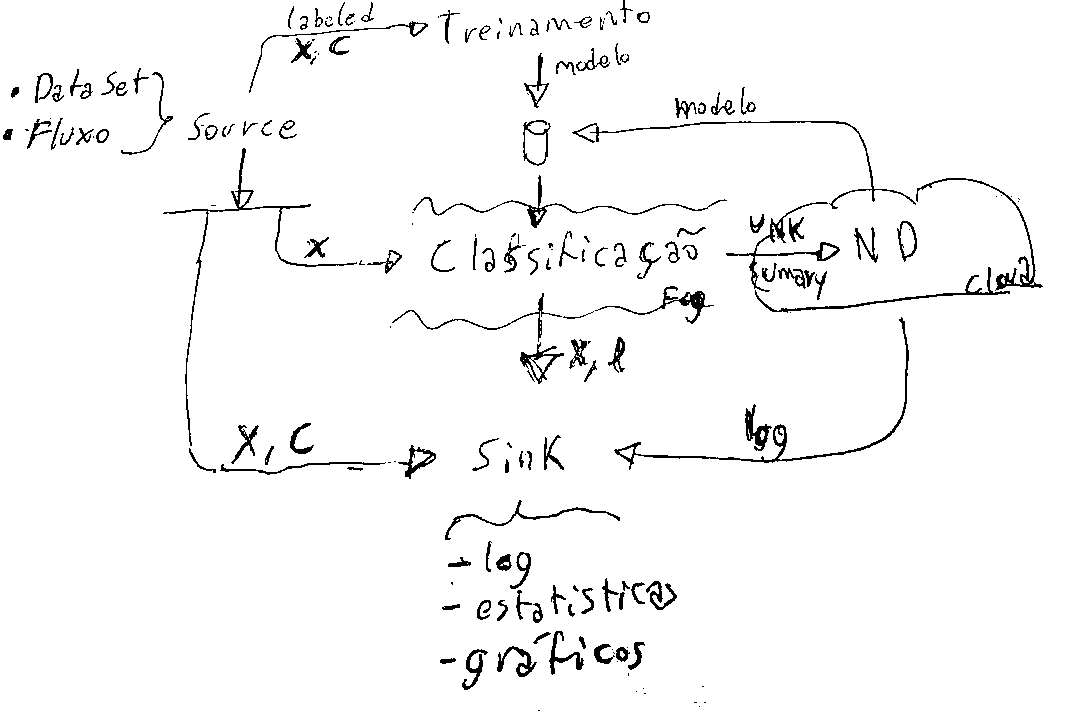 labeled
X, C
Treinamento
modelo
• DataSet
• Fluxo
Source
modelo
X
Classificação
UNK
Sumary
ND
Cloud
Fog
X, l
X, C
Sink
log
- log
- estatisticas
- gráficos